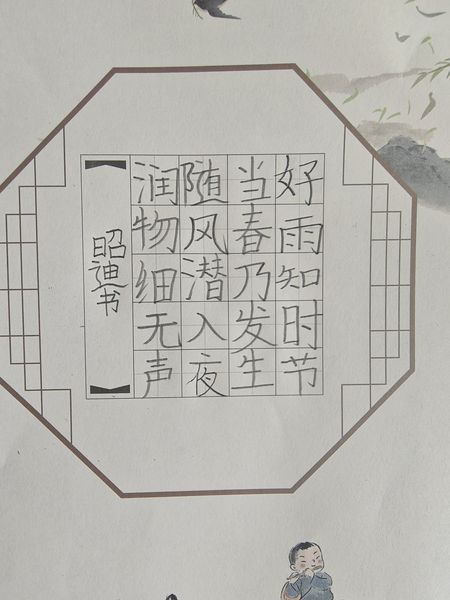 好雨知时节
当春乃发生
随风潜入夜
润物细无声
昭迪书